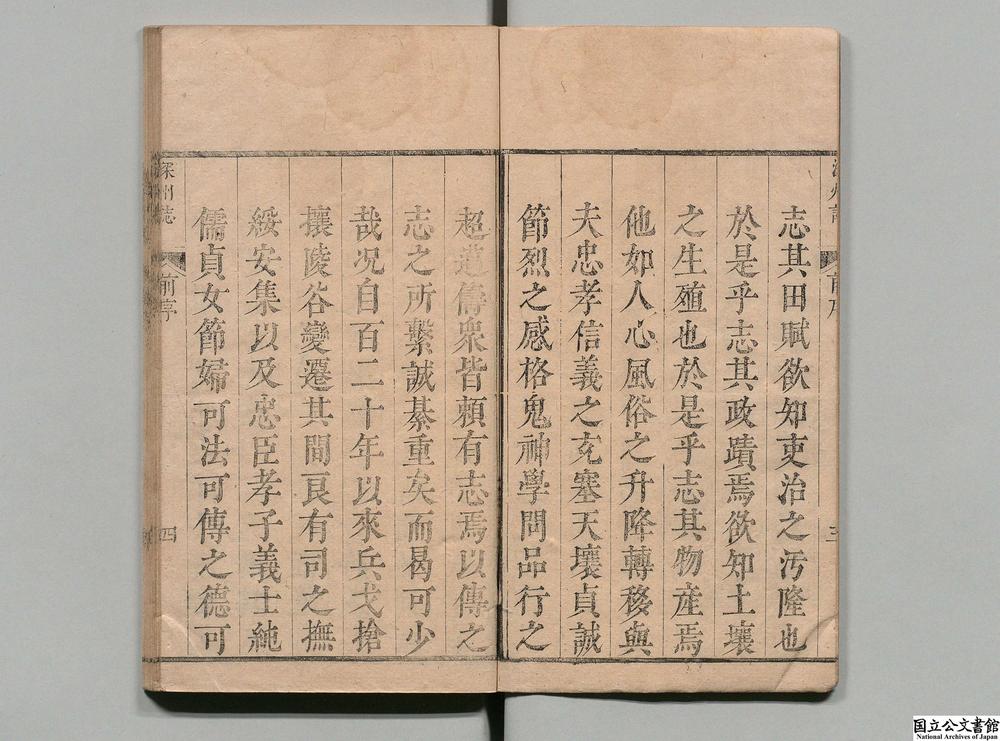 志其田賦欲知吏治之汚隆也
於是乎志其政蹟焉欲知土壤
之生殖也於是乎志其物産焉
他如人心風俗之升降轉移與
夫忠孝信義之充塞天壤貞誠
節烈之感格鬼神學問品行之
超邁儔衆皆賴有志焉以傳之
志之所繫誠綦重矣而曷可少
哉况自百二十年以來兵戈搶
攘陵谷變遷其間良有司之撫
綏安集以及忠臣孝子義士純
儒貞女節婦可法可傳之德可
深州誌
前序
四
国立公文書館
National Archives of Japan